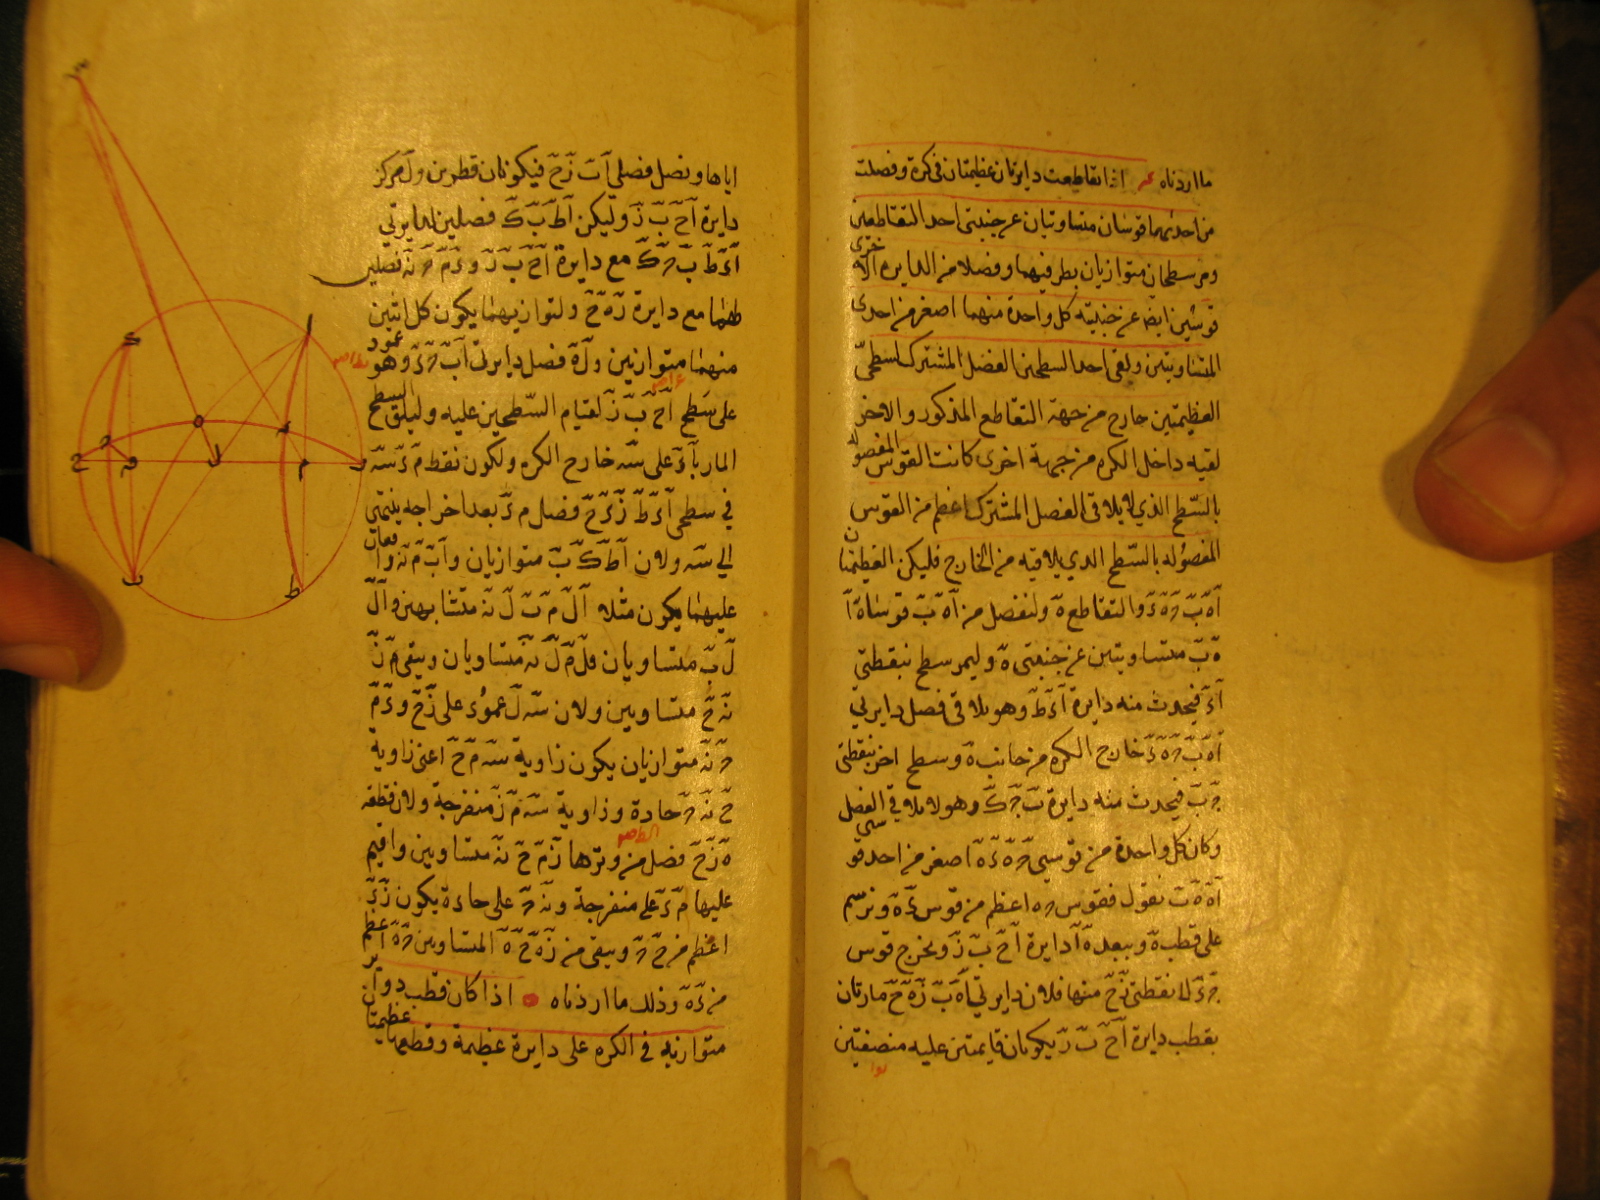 ما اردناه اذا تقاطعت دايرتان عظيمتان فى كرة وفصلت
من احديهما قوسان متساويتان عن جنبتى احد التقاطعين
ومر سطحان متوازيان بطرفيهما وفصلا من الدايره الاخرى
قوسين ايضا عن جنبتيه كل واحدة منهما اصغر من احدى
المتساويتين ولقى احد السطحين الفصل المشترك لسطحى
العظيمتين خارج من جهة التقاطع المذكور والاخر
لقيه داخل الكره من جهة اخرى كانت القوس المفصوله
بالسطح الذي لا يلاقى الفصل المشترك اعظم من القوس
المفصوله بالسطح الذي يلاقيه من الخارج فليكن العظيمتان
اه ب ح ه ء والتقاطع ه ولنفصل من اه ب قوسا ه ا
ه ب متساويتين عن جنبتى ه وليمر سطح بنقطتى
ا ء فيحدث منه دايرة ا ء ط وهو يلاقى فصل دايرتي
اه ب ح ه ء خارج الكره من جانب ه وسطح اخر بنقطتى
ح ب فيحدث منه دايرة ب ح ك وهو لا يلاقى الفصل
وكان كل واحدة من قوسى ح ه ء ه اصغر من احد قوسى
اه ه ب نقول فقوس ح ه اعظم من قوس ء ه ونرسم
على قطب ه وببعد ه ا دايرة ا ح ب ز ونخرج قوس
ح ء الى نقطتى ز ح منها فلان دايرتي اه ب ز ه ح مارتان
بقطب دايرة ا ح ب ز يكونان قايمتين عليه منصفتين
اياها ونصل فصلى ا ب ز ح فيكونان قطرين ول مركز
دايرة ا ح ب ز وليكن ا ط ب ك فصلين لدايرتي
ا ء ط ب ح ك مع دايرة ا ح ب ز و ء م ح ن فصلين
لهما مع دايرة ز ه ح ولتوازيهما يكون كل اثنين
منهما متوازيين ول ه فصل دايرتى ا ب ح ء وهو عمود
على سطح ا ح ب ز لقيام السطحين عليه وليلق السطح
المار با ء على س خارج الكره ولكون نقط م ء س
في سطحى ا ء ط ز ء ح فصل م ء بعد اخراجه ينتهي
الي س ولان ا ط ك ب متوازيان وا ب م ن واقعان
عليهما يكون مثلثا ا ل م ب ل ن متشابهين و ا ل
ل ب متساويان فل م ل ن متساويان ويبقى م ز
ن ح متساويين ولان س ل عمود على ز ح و ء م
ح ن متوازيان يكون زاوية س م ح اعنى زاوية
ح ن ح حادة وزاوية س م ز منفرجة ولان قطعه
ه ز ح فصل من وترها ز م ح ن متساويين واقيم
عليها م ء على منفرجة و ن ح على حادة يكون ز ء
اعظم من ح ح ويبقى من ز ه ح ه المتساويين ح ه اعظم
من ء ه وذلك ما اردناه اذا كان قطب دواير
متوازيه في الكره على دايرة عظيمة وقطعها عظيمتان